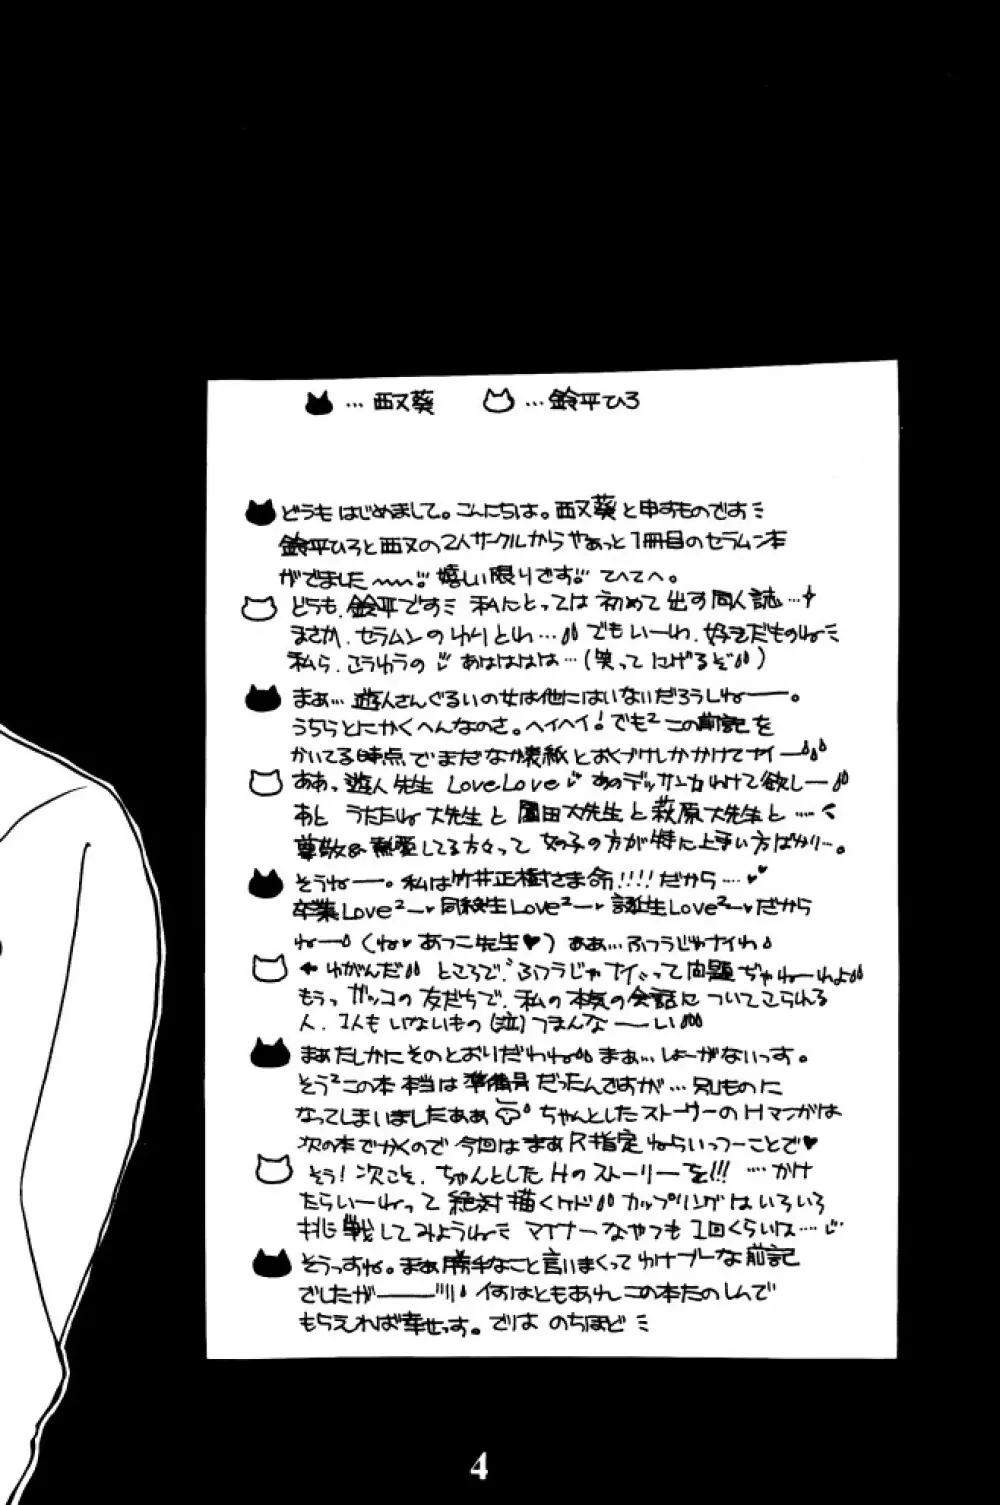 …西又葵 …鈴平ひろ
どうもはじめまして。こんにちは。西又葵と申すものです
鈴平ひろと西又の2人サークルからやぁっと1冊目のセラムン本
がでました〜〜!! 嬉しい限りです!! てへてへ。
どうも、鈴平です 私にとっては初めて出す同人誌…
まさか、セラムンのわりとね… でもいーわ、好きだものね
私ら、こうゆうの あははははは…(笑ってにげるぞ)
まぁ…遊人さんぐるいの女は他にはいないだろうしねー。
うちらとにかくへんなのさ。ヘイヘイ! でも²この前記を
かいてる時点でまだなか表紙とおくづけしかかけてナイー
ああっ遊人先生 LoveLove あのデッサン力わけて欲しー
あと うたたね大先生と園田大先生と萩原大先生と……
尊敬&熱愛してる方々って 女の子の方が特に上手い方ばかり…。
そうねー。私は竹井正樹さま命!!!! だから…
卒業Love²ー♥同級生Love²ー♥誕生Love²ー♥だから
ねー(ね♥あつこ先生♥) ああ…ふつうじゃナイわ
←ゆがんだ ところで、ふつうじゃナイ、って問題ぢゃねーわよ
もうっガッコの友だちで、私の本気の会話についてこられる
人、1人もいないもの(泣)つまんなーい
まぁたしかにそのとおりだわね まぁ…しょーがないっす。
そう²この本 本当は準備号だったんですが…別ものに
なってしまいましたああ ちゃんとしたストーリーのHマンガは
次の本でかくので今回はまぁR指定ねらいっつーことで♥
そう!次こそ、ちゃんとしたHのストーリーを!!! …かけ
たらいーねって 絶対描くケド カップリングはいろいろ
挑戦してみようね マイナーなやつも1回くらいは…
そうっすね。まぁ勝手なこと言いまくってわけプーな前記
でしたがー!!! 何はともあれこの本たのしんで
もらえれば幸せっす。では のちほど
4